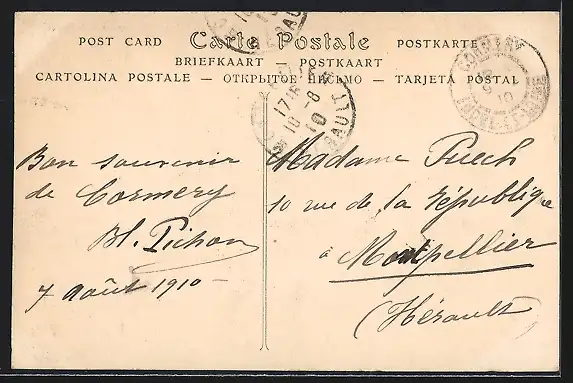 POST CARD Carte Postale POSTKARTE
BRIEFKAART — POSTKAART
CARTOLINA POSTALE — ОТКРЫТОЕ ПИСЬМО — TARJETA POSTAL
CORMERY
INDRE-ET-LOIRE
10
17
10
8
10
HERAULT
Bon souvenir
de Cormery
Bl. Pichon
7 Août 1910
Madame Puech
10 rue de la République
à Montpellier
(Hérault)